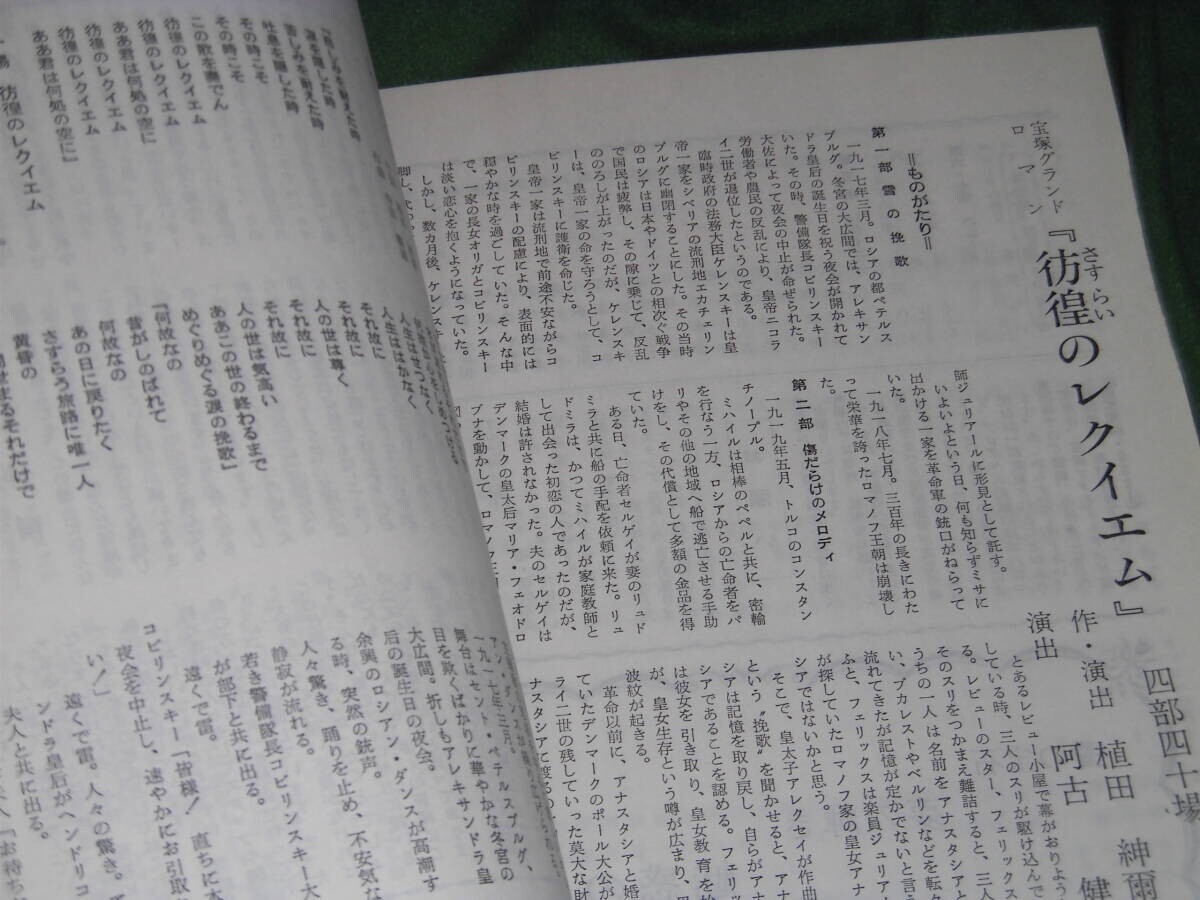 宝塚グランド
ロマン
『彷徨のレクイエム』
さすらい
四部四十場
作・演出　植田　紳爾
演出　阿古　健
＝ものがたり＝
第一部　雪の挽歌
一九一七年三月。ロシアの都ペテルス
ブルグ。冬宮の大広間では、アレキサン
ドラ皇后の誕生日を祝う夜会が開かれて
いた。その時、警備隊長コビリンスキー
大佐によって夜会の中止が命ぜられた。
労働者や農民の反乱により、皇帝ニコラ
イ二世が退位したというのである。
臨時政府の法務大臣ケレンスキーは皇
帝一家をシベリアの流刑地エカチェリン
ブルグに幽閉することにした。その当時
のロシアは日本やドイツとの相次ぐ戦争
で国民は疲弊し、その隙に乗じて、反乱
ののろしが上がったのだが、ケレンスキ
ーは、皇帝一家の命を守ろうとして、コ
ビリンスキーに護衛を命じた。
皇帝一家は流刑地で前途不安ながらコ
ビリンスキーの配慮により、表面的には
穏やかな時を過ごしていた。そんな中
で、一家の長女オリガとコビリンスキー
は淡い恋心を抱くようになっていた。
しかし、数カ月後、ケレンスキー
脚し、
師ジュリアールに形見として託す。
いよいよという日、何も知らずミサに
出かける一家を革命軍の銃口がねらって
いた。
一九一八年七月。三百年の長きにわた
って栄華を誇ったロマノフ王朝は崩壊し
た。
第二部　傷だらけのメロディ
一九一九年五月、トルコのコンスタン
チノープル。
ミハイルは相棒のペペルと共に、密輸
を行なう一方、ロシアからの亡命者をパ
リやその他の地域へ船で逃亡させる手助
けをし、その代償として多額の金品を得
ていた。
ある日、亡命者セルゲイが妻のリュド
ミラと共に船の手配を依頼に来た。リュ
ドミラは、かつてミハイルが家庭教師と
して出会った初恋の人であったのだが、
結婚は許されなかった。夫のセルゲイは
デンマークの皇太后マリア・フェオドロ
ブナを動かして、ロマノフ王
とあるレビュー小屋で幕がおりよう
している時、三人のスリが駆け込んで
る。レビューのスター、フェリックス
そのスリをつかまえ難詰すると、三人
うちの一人は名前をアナスタシアと
い、ブカレストやベルリンなどを転々
流れてきたが記憶が定かでないと言う
ふと、フェリックスは楽員ジュリア
が探していたロマノフ家の皇女アナ
シアではないかと思う。
そこで、皇太子アレクセイが作曲
という〝挽歌〟を聞かせると、アナ
シアは記憶を取り戻し、自らがアナ
シアであることを認める。フェリッ
は彼女を引き取り、皇女教育を
が、皇女生存という噂が広まり、
波紋が起きる。
革命以前に、アナスタシアと婚
ていたデンマークのポール大公が
ライ二世の残していった莫大な財
ナスタシアに渡るの
「悲しみを耐えた時
苦しみを耐えた時
涙を隠した時
吐息を隠した時
その時こそ
その時こそ
この歌を奏でん
彷徨のレクイエム
彷徨のレクイエム
ああ君は何処の空に
彷徨のレクイエム
彷徨のレクイエム
ああ君は何処の空に」
場　彷徨のレクイエム
人生はせつなく
人生ははかなく
それ故に
それ故に
人の世は尊く
それ故に
それ故に
人の世は気高い
ああこの世の終わるまで
めぐりめぐる涙の挽歌」
「何故なの
昔がしのばれて
何故なの
あの日に戻りたく
さすらう旅路に唯一人
黄昏の
一九一七年三月。
舞台はセント・ペテルスブルグ、
目を欺くばかりに華やかな冬宮の
大広間。折しもアレキサンドラ皇
后の誕生日の夜会。
余興のロシアン・ダンスが高潮す
る時、突然の銃声。
人々驚き、踊りを止め、不安気な
静寂が流れる。
若き警備隊長コビリンスキー大
が部下と共に出る。
遠くで雷。
コビリンスキー「皆様！　直ちに本
夜会を中止し、速やかにお引取
い！」
遠くで雷。人々の驚き。
ンドラ皇后がヘンドリコ
夫人と共に出る。
「お待ち